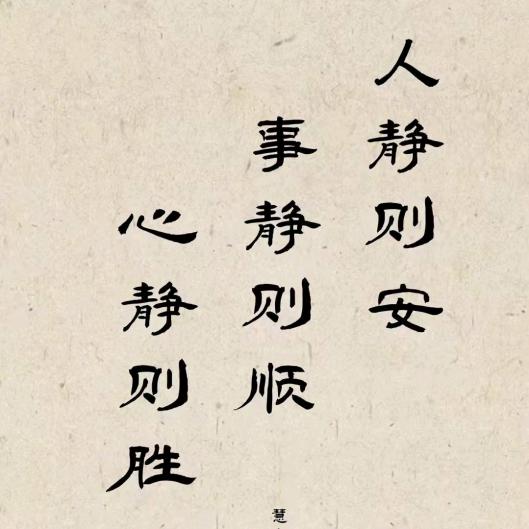 人静则安
事静则顺
心静则胜
慧